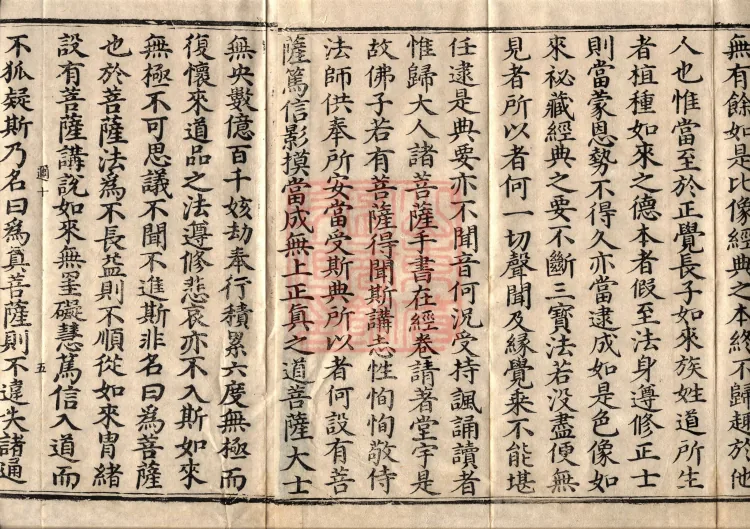 無有餘如是比像經典之本終不歸趣於他
人也惟當至於正覺長子如來族姓道所生
者植種如來之德本者假至法身遵修正士
則當蒙恩勢不得久亦當逮成如是色像如
來祕藏經典之要不斷三寶法若没盡便無
見者所以者何一切聲聞及緣覺乘不能堪
任逮是典要亦不聞音何況受持諷誦讀者
惟歸大人諸菩薩手書在經卷請著堂宇是
故佛子若有菩薩得聞斯講志性恂恂敬侍
法師供奉所安當受斯典所以者何設有菩
薩篤信影摸當成無上正真之道菩薩大士
無央數億百千姟劫奉行積累六度無極而
復懷來道品之法遵修悲哀亦不入斯如來
無極不可思議不聞不進斯非名曰為菩薩
也於菩薩法為不長益則不順從如來胄緒
設有菩薩講說如來無罣礙慧篤信入道而
五
不狐疑斯乃名曰為真菩薩則不違失諸通